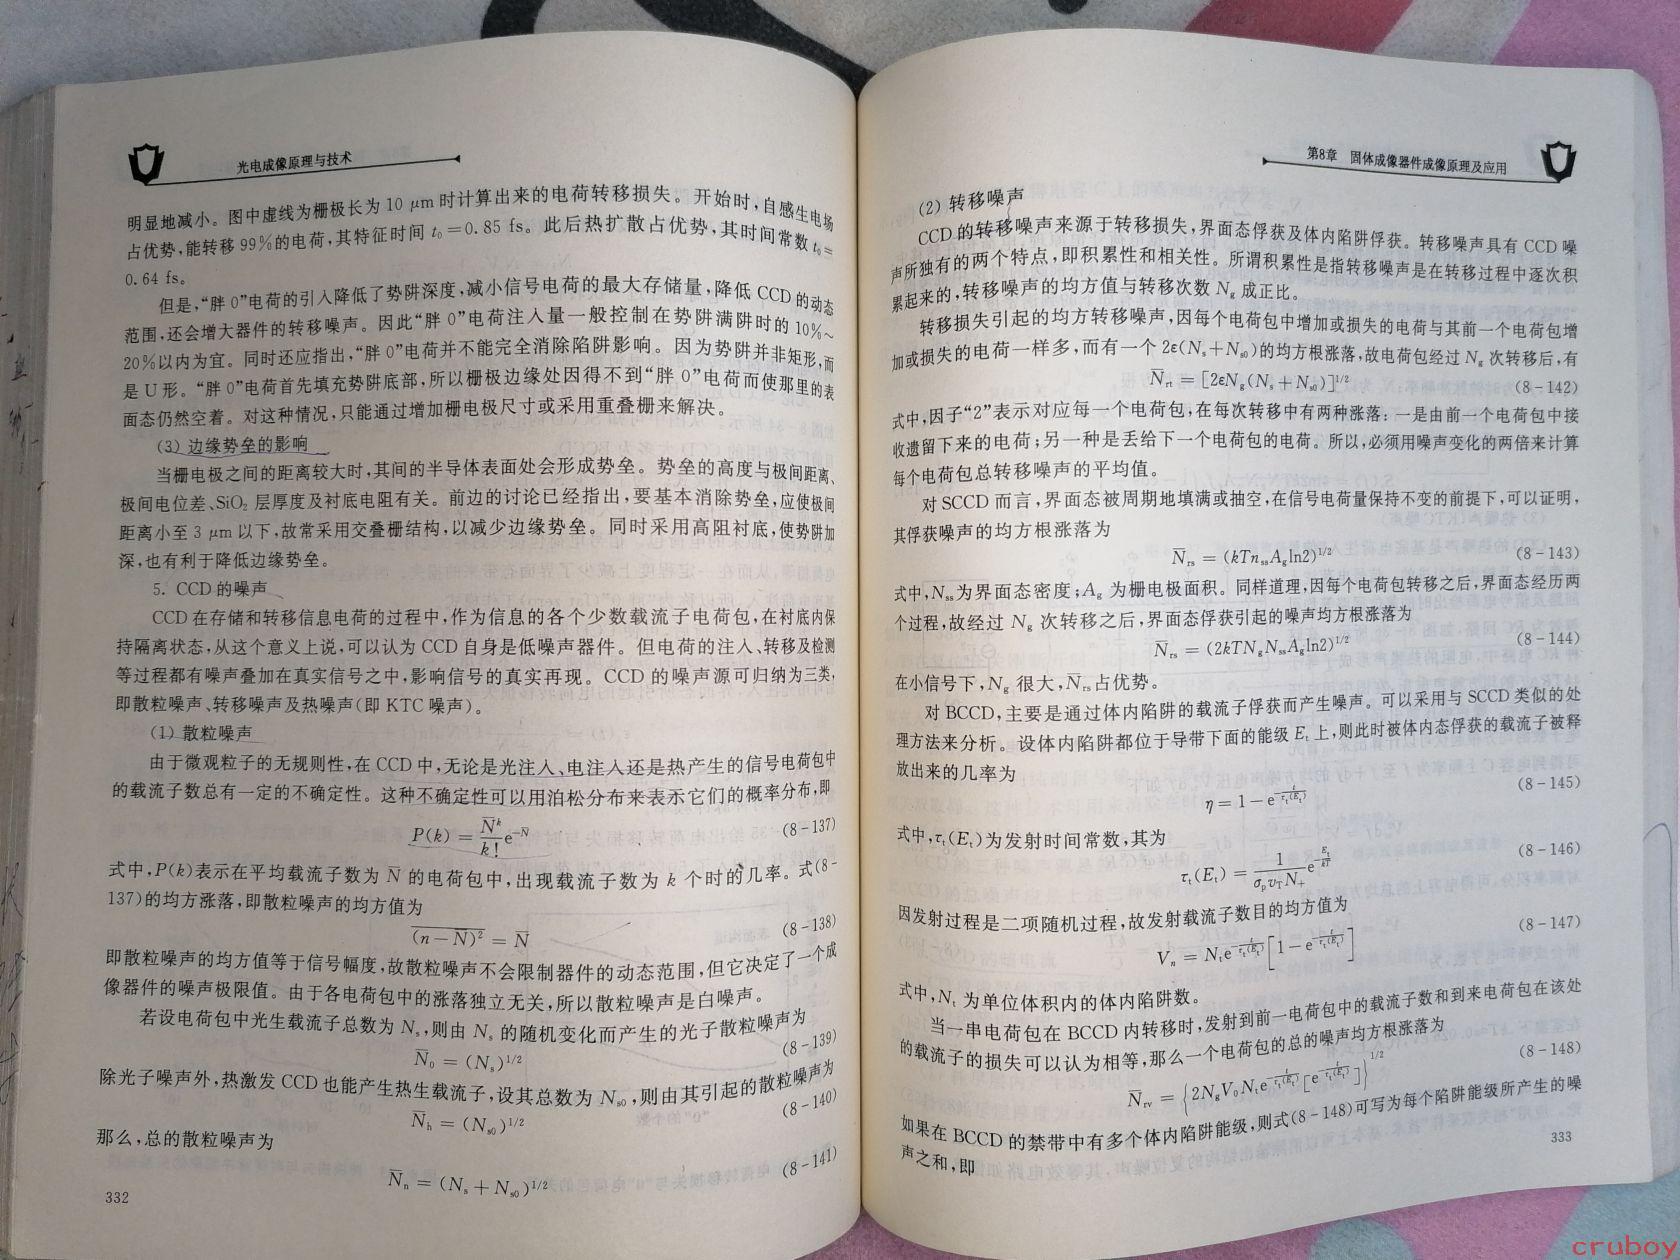 光电成像原理与技术
明显地减小。图中虚线为栅极长为 10 μm 时计算出来的电荷转移损失。开始时,自感生电场
占优势,能转移 99%的电荷,其特征时间 t₀=0.85 fs。此后热扩散占优势,其时间常数 t₀=
0.64 fs。
但是,“胖 0”电荷的引入降低了势阱深度,减小信号电荷的最大存储量,降低 CCD 的动态
范围,还会增大器件的转移噪声。因此“胖 0”电荷注入量一般控制在势阱满阱时的 10%~
20%以内为宜。同时还应指出,“胖 0”电荷并不能完全消除陷阱影响。因为势阱并非矩形,而
是 U 形。“胖 0”电荷首先填充势阱底部,所以栅极边缘处因得不到“胖 0”电荷而使那里的表
面态仍然空着。对这种情况,只能通过增加栅电极尺寸或采用重叠栅来解决。
(3) 边缘势垒的影响
当栅电极之间的距离较大时,其间的半导体表面处会形成势垒。势垒的高度与极间距离、
极间电位差、SiO₂ 层厚度及衬底电阻有关。前边的讨论已经指出,要基本消除势垒,应使极间
距离小至 3 μm 以下,故常采用交叠栅结构,以减少边缘势垒。同时采用高阻衬底,使势阱加
深,也有利于降低边缘势垒。
5. CCD 的噪声
CCD 在存储和转移信息电荷的过程中,作为信息的各个少数载流子电荷包,在衬底内保
持隔离状态,从这个意义上说,可以认为 CCD 自身是低噪声器件。但电荷的注入、转移及检测
等过程都有噪声叠加在真实信号之中,影响信号的真实再现。CCD 的噪声源可归纳为三类,
即散粒噪声、转移噪声及热噪声(即 KTC 噪声)。
(1) 散粒噪声
由于微观粒子的无规则性,在 CCD 中,无论是光注入、电注入还是热产生的信号电荷包中
的载流子数总有一定的不确定性。这种不确定性可以用泊松分布来表示它们的概率分布,即
P(k) = N̄ᵏ/k! e^(−N̄) (8-137)
式中,P(k)表示在平均载流子数为 N̄ 的电荷包中,出现载流子数为 k 个时的几率。式(8-
137)的均方涨落,即散粒噪声的均方值为
(n−N̄)² = N̄ (8-138)
即散粒噪声的均方值等于信号幅度,故散粒噪声不会限制器件的动态范围,但它决定了一个成
像器件的噪声极限值。由于各电荷包中的涨落独立无关,所以散粒噪声是白噪声。
若设电荷包中光生载流子总数为 Nₛ,则由 Nₛ 的随机变化而产生的光子散粒噪声为
N̄₀ = (Nₛ)^(1/2) (8-139)
除光子噪声外,热激发 CCD 也能产生热生载流子,设其总数为 Nₛ₀,则由其引起的散粒噪声为
N̄ₕ = (Nₛ₀)^(1/2) (8-140)
那么,总的散粒噪声为
N̄ₙ = (Nₛ + Nₛ₀)^(1/2) (8-141)
332
第8章 固体成像器件成像原理及应用
(2) 转移噪声
CCD 的转移噪声来源于转移损失,界面态俘获及体内陷阱俘获。转移噪声具有 CCD 噪
声所独有的两个特点,即积累性和相关性。所谓积累性是指转移噪声是在转移过程中逐次积
累起来的,转移噪声的均方值与转移次数 N_g 成正比。
转移损失引起的均方转移噪声,因每个电荷包中增加或损失的电荷与其前一个电荷包增
加或损失的电荷一样多,而有一个 2ε(Nₛ+Nₛ₀)的均方根涨落,故电荷包经过 N_g 次转移后,有
N̄_rt = [2εN_g(Nₛ+Nₛ₀)]^(1/2) (8-142)
式中,因子“2”表示对应每一个电荷包,在每次转移中有两种涨落:一是由前一个电荷包中接
收遗留下来的电荷;另一种是丢给下一个电荷包的电荷。所以,必须用噪声变化的两倍来计算
每个电荷包总转移噪声的平均值。
对 SCCD 而言,界面态被周期地填满或抽空,在信号电荷量保持不变的前提下,可以证明,
其俘获噪声的均方根涨落为
N̄_rs = (kTn_ss A_g ln2)^(1/2) (8-143)
式中,N_ss 为界面态密度;A_g 为栅电极面积。同样道理,因每个电荷包转移之后,界面态经历两
个过程,故经过 N_g 次转移之后,界面态俘获引起的噪声均方根涨落为
N̄_rs = (2kTN_g N_ss A_g ln2)^(1/2) (8-144)
在小信号下,N_g 很大,N̄_rs 占优势。
对 BCCD,主要是通过体内陷阱的载流子俘获而产生噪声。可以采用与 SCCD 类似的处
理方法来分析。设体内陷阱都位于导带下面的能级 Eₜ 上,则此时被体内态俘获的载流子被释
放出来的几率为
η = 1 − e^(−t/τₜ(Eₜ)) (8-145)
式中,τₜ(Eₜ)为发射时间常数,其为
τₜ(Eₜ) = 1/(σ_p v_T N₊) e^(−Eₜ/kT) (8-146)
因发射过程是二项随机过程,故发射载流子数目的均方值为
Vₙ = Nₜ e^(−t/τₜ(Eₜ)) [1 − e^(−t/τₜ(Eₜ))] (8-147)
式中,Nₜ 为单位体积内的体内陷阱数。
当一串电荷包在 BCCD 内转移时,发射到前一电荷包中的载流子数和到来电荷包在该处
的载流子的损失可以认为相等,那么一个电荷包的总的噪声均方根涨落为
N̄_rv = {2N_g V₀ Nₜ e^(−t/τₜ(Eₜ)) [e^(−t/τₜ(Eₜ))]}^(1/2) (8-148)
如果在 BCCD 的禁带中有多个体内陷阱能级,则式(8-148)可写为每个陷阱能级所产生的噪
声之和,即
333
cruboy